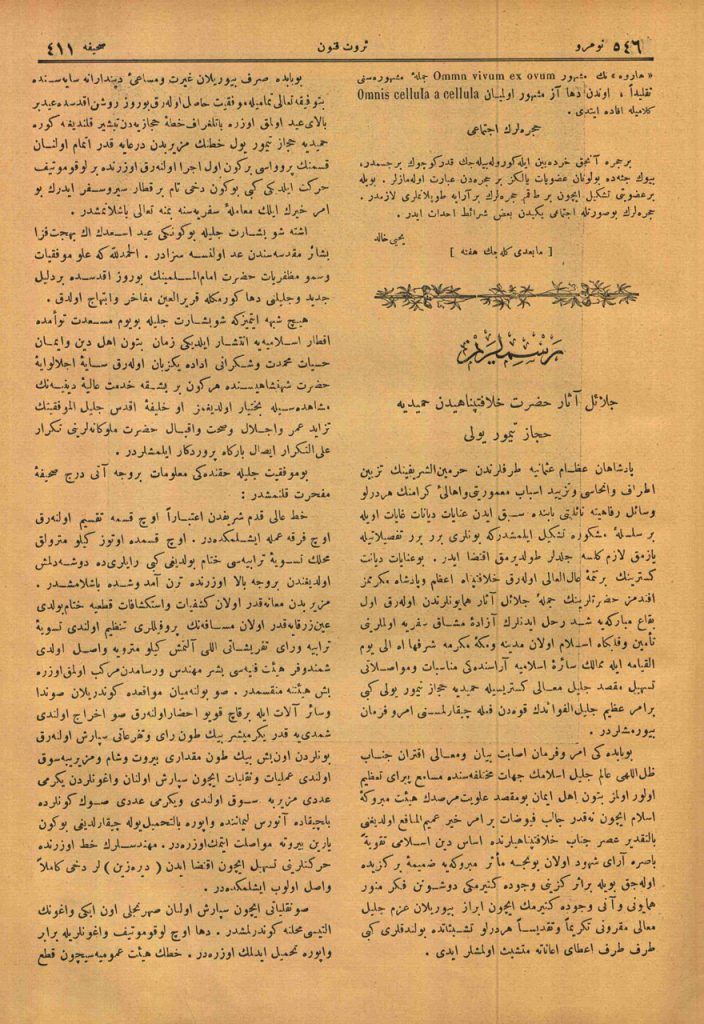 نومرو ٥٤٦
ثروت فنون
صحيفه ٤١١
« هاروه » نك مشهور Omnn vivum ex ovum جملهٔ مشهوره‌سنى
تقليداً ، اوندن دها آز مشهور اولميان Omnis cellula a cellula
كلاميله افاده ايتدى .
حجره‌لرك اجتماعى
برحجره آنجق خرده‌بين ايله كوروله‌بيله‌جك قدر كوچوك برجسمدر،
بيوك جثه‌ده بولونان عضويات يالكز بر حجره‌دن عبارت اوله‌مازلر . بويله
برعضويتى تشكيل ايچون بر طقم حجره‌لرك برآرايه طوپلانمالرى لازمدر .
حجره‌لرك بوصورتله اجتماعى يكيدن بعض شرائط احداث ايدر .
يحيى خالد
[ مابعدى كله‌جك هفته ]
رسملريمز
جلائل آثار حضرت خلافتپناهيدن حميديه
حجاز تيمور يولى
پادشاهان عظام عثمانيه طرفلرندن حرمين‌الشريفينك تزيين
اطراف وانحاسى وتزييد اسباب معموريتى واهالئ كرامنك هردرلو
وسائل رفاهينه نائليتى بابنده سبق ايدن عنايات ديانات غايات اويله
بر سلسلهٔ مشكوره تشكيل ايلمشدركه بونلرى برر برر تفصيلاتيله
يازمق لازم كلسه جلدلر طولديرمق اقتضا ايدر . بوعنايات ديانت
كسترينك برتتمهٔ عال‌العالى اوله‌رق خلافتپناه اعظم وپادشاه مكرممز
افندمز حضرتلرينك جملهٔ جلائل آثار همايونلرندن اوله‌رق اول
بقاع مباركه‌يه شد رحل ايدنلرك آزادهٔ مشاق سفريه اولملرينى
تأمين وقابكاه اسلام اولان مدينه ومكهٔ مكرمه شرفهما الله الى يوم
القيامه ايله ممالك سائرهٔ اسلاميه آراسنده‌كى مناسبات ومواصلاتى
تسهيل مقصد جليل معالى كستريسيله حميديه حجاز تيمور يولى كبى
برامر عظيم جليل‌الفوائدك قوه‌دن فعله چيقارلمسنى امرو فرمان
بيورمشلردر .
بوبابده كى امر وفرمان اصابت بيان ومعالى اقتران جناب
ظل‌اللهى عالم جليل اسلامك جهات مختلفه‌سنده مسامع پيراى تعظيم
اولور اولمز بتون اهل ايمان بومقصد علويت‌مرصدك هيئت مبروكهٔ
اسلام ايچون نه‌قدر جالب فيوضات بر امر خير عميم‌المنافع اولديغنى
بالتقدير عصر جناب خلافتپناهيلرنده اساس دين اسلامى تقويهٔ
باصره آراى شهود اولان بونجه مآثر مبروكه‌يه ضميمهٔ بركزيده
اوله‌جق بويله براثر كزينى وجوده كتيرمكى دوشوتن فكر منور
همايونى وآنى وجوده كتيرمك ايچون ابراز بيوريلان عزم جليل
معالى مقرونى تكريماً وتقديساً هردرلو تشبثاتده بولندقلرى كبى
طرف طرف اعطاى اعاناته متشبث اولمشلر ايدى .
بوبابده صرف بيوريلان غيرت ومساعئ دينداران‌ه سايه‌سنده
بتوفيقه تعالى تماميله موفقيت حاصل اوله‌رق بوروز روشن اقدسده عيدبر
بالاى عيد اولمق اوزره باتلغراف خطهٔ حجازيه‌دن تبشير قلنديغنه كوره
حميديه حجاز تيمور يول خطنك مزيربدن درعايه قدر اتمام اولنان
قسمنك پرواسى بركون اول اجرا اوله‌رق اوزرنده بر لوقوموتيف
حركت ايلديكى كبى بوكون دخى تام بر قطار سيروسفر ايدرك بو
امر خيرك ايلك معاملهٔ سفريه‌سنه بمنه تعالى باشلانمشدر .
اشته شو بشارت جليله بوكونكى عيد اسعدك اك بهجت‌فزا
بشائر مقدسه‌سندن عد اولنسه سزادر . الحمدلله كه علو موفقيات
وسمو مظفريات حضرت امام‌المسلمينك بوروز اقدسده بردليل
جديد وجليلنى دها كورمكله قريرالعين مفاخر وابتهاج اولدق .
هيچ شبهه ايتميزكه شو بشارت جليله بويوم مسعدت توأمده
اقطار اسلاميه‌يه انتشار ايلديكى زمان بتون اهل دين وايمان
حسيات محمدت وشكرانى اداده يكزبان اوله‌رق سايهٔ اجلالوايهٔ
حضرت شهنشاهيسنده هركون بر بشقه خدمت عاليهٔ دينيه‌نك
مشاهده‌سيله بختيار اولديغمز او خليفهٔ اقدس جليل‌الموفقينك
تزايد عمر واجلال وصحت واقبال حضرت ملوكانه‌لرينى تكرار
على‌التكرار ايصال باركاه پروردكار ايلمشلردر .
بوموفقيت جليله حقنده‌كى معلومات بروجه آتى درج صحيفهٔ
مفخرت قلنمشدر :
خط عالى قدم شريفدن اعتباراً اوچ قسمه تقسيم اوله‌رق
اوچ فرقه عمله ايشلمكده‌در . اوچ قسمده اوتوز كيلو مترولق
محلك تسويهٔ ترابيه‌سى ختام بولديغى كبى رايلرى‌ده دوشه‌دلمش
اولديغندن بروجه بالا اوزرنده ترن آمد وشده باشلامشدر .
مزيربدن معانه‌قدر اولان كشفيات واستكشافات قطعيه ختام‌بولدى
عين‌زرقايه‌قدر اولان مسافه‌نك پروفيللرى تنظيم اولندى تسويهٔ
ترابيه وراى تفريشاتى اللى آلتمش كيلو مترويه واصل اولدى
شمندوفر هيئت فنيه‌سى بشر مهندس ورسامدن مركب اولمق‌اوزره
بش هيئته منقسمدر . صو بولنه‌ميان مواقعده كوندريلان صوندا
وسائر آلات ايله برقاچ قويو احضار اوله‌رق صو اخراج اولندى
شمدى‌يه قدر يكرميشر بيك طون راى وتفرعاتى سپارش اوله‌رق
بونلردن اون‌بش بيك طون مقدارى بيروت وشام ومزيربه‌سوق
اولندى عمليات ونقليات ايچون سپارش اولنان واغونلردن يكرمى
عددى مزيربه سوق اولندى ويكرمى عددى صوك كونلرده
بلچيقاده آنورس ليماننده واپوره بالتحميل‌يوله چيقارلديغى بوكون
يارين بيروته مواصلت ايتمك‌اوزره‌در . مهندسلرك خط اوزرنده
حركتلرينى تسهيل ايچون اقتضا ايدن ( ديره‌زين ) لر دخى كاملاً
واصل اولوب ايشلمكده‌در .
صونقلياتى ايچون سپارش اولنان صهرنجلى اون ايكى واغونك
آلتيسى محلنه كوندرلمشدر . دها اوچ لوقوموتيف واغونلريله برابر
واپوره تحميل ايدلمك اوزره‌در . خطك هيئت عموميه‌سيچون قطع